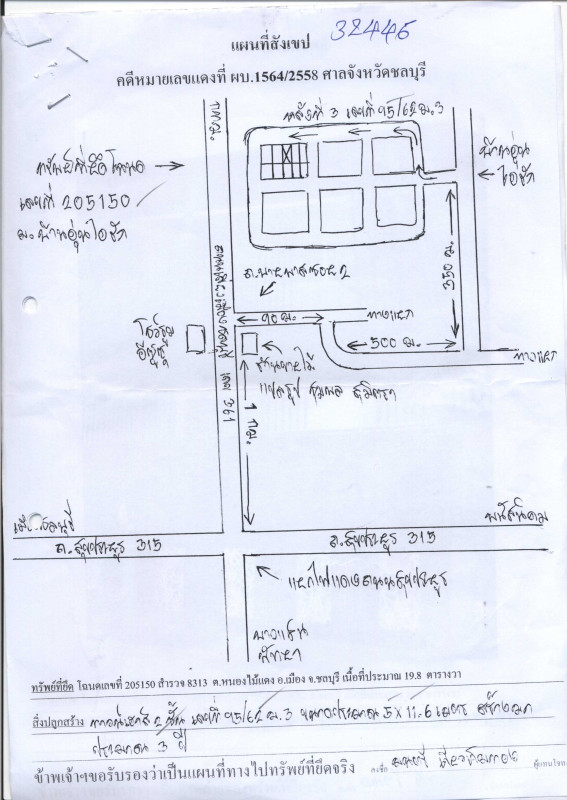 32446
แผนที่สังเขป
คดีหมายเลขแดงที่ ผบ.1564/2558 ศาลจังหวัดชลบุรี
กทม.
หลังที่ 3 เลขที่ 95/62 ม.3
ทรัพย์ที่ยึด โฉนด
เลขที่ 205150
ม. บ้านอุ่นไอรัก
บ้านอุ่น
ไอรัก
350 ม.
90 ม.
ทางแยก
500 ม.
ทางแยก
361
1 กม.
พนัสนิคม
ถ. สุขประยูร 315
ถ. สุขประยูร 315
แยกไฟแดงถนนสุขประยูร
บางแสน
พัทยา
ทรัพย์ที่ยึด โฉนดเลขที่ 205150 สำรวจ 8313 ต.หนองไม้แดง อ.เมือง จ.ชลบุรี เนื้อที่ประมาณ 19.8 ตารางวา
สิ่งปลูกสร้าง ทาวน์เฮาส์ 2 ชั้น เลขที่ 95/62 ม.3 ขนาดประมาณ 5 x 11.6 เมตร สร้างมา
ประมาณ 3 ปี
ข้าพเจ้าฯขอรับรองว่าเป็นแผนที่ทางไปทรัพย์ที่ยึดจริง